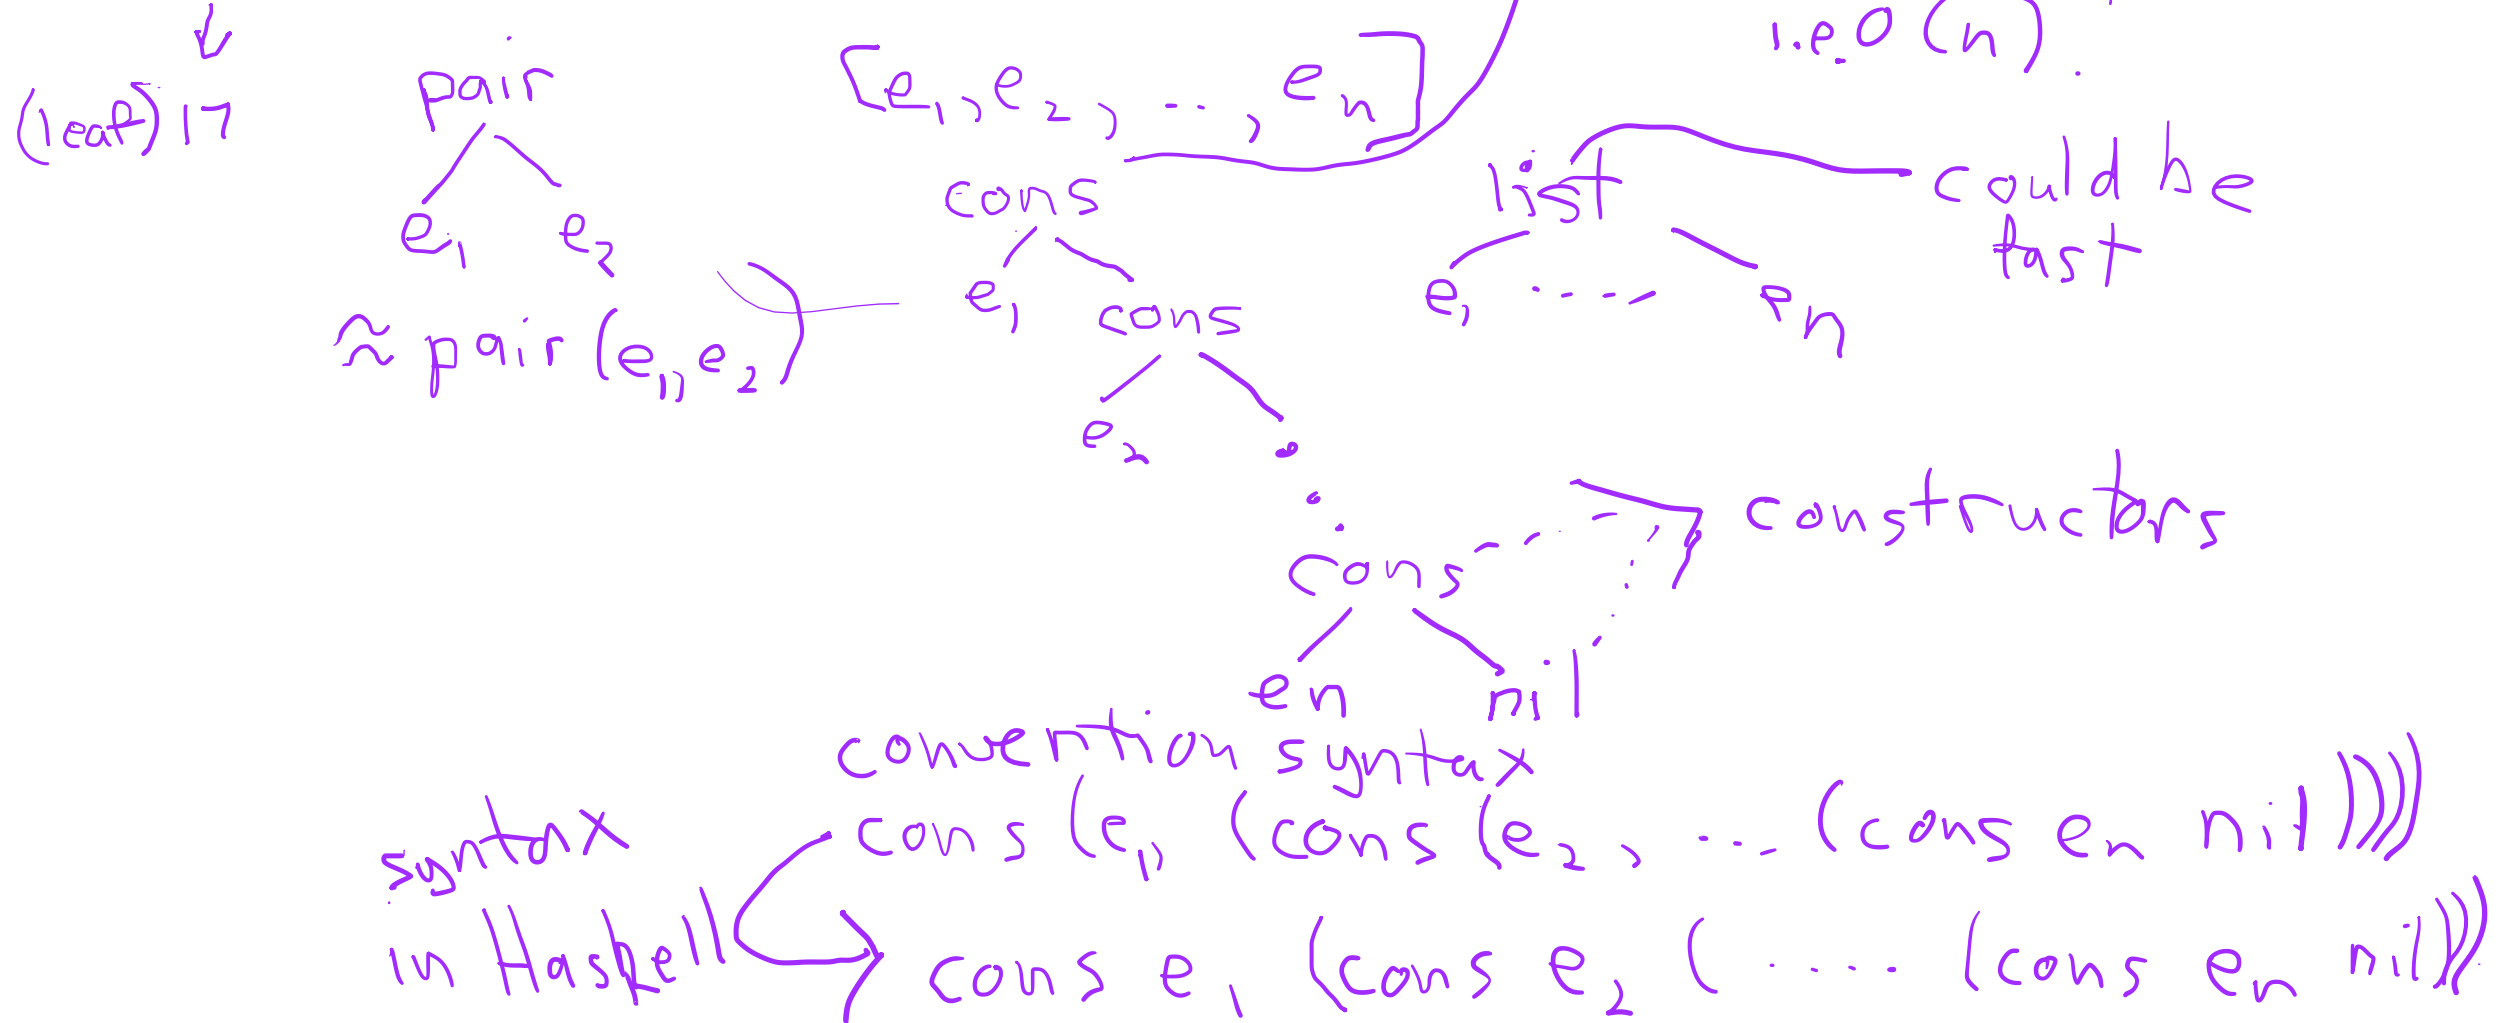 (left, ir
pair
[e1, e2, ... , en]
n.o (n)
e1
e2
≈ pair (e1, e2)
cons
e1
cons
e2
cons
en
nil
list
e1 ... en
could be
fast
constructors
convention syntax
cons (e1, (cons (e2, ... (cons en nil))))
syntax
in Haskell
cons e1 (cons e2 ( .... (cons en nil)))